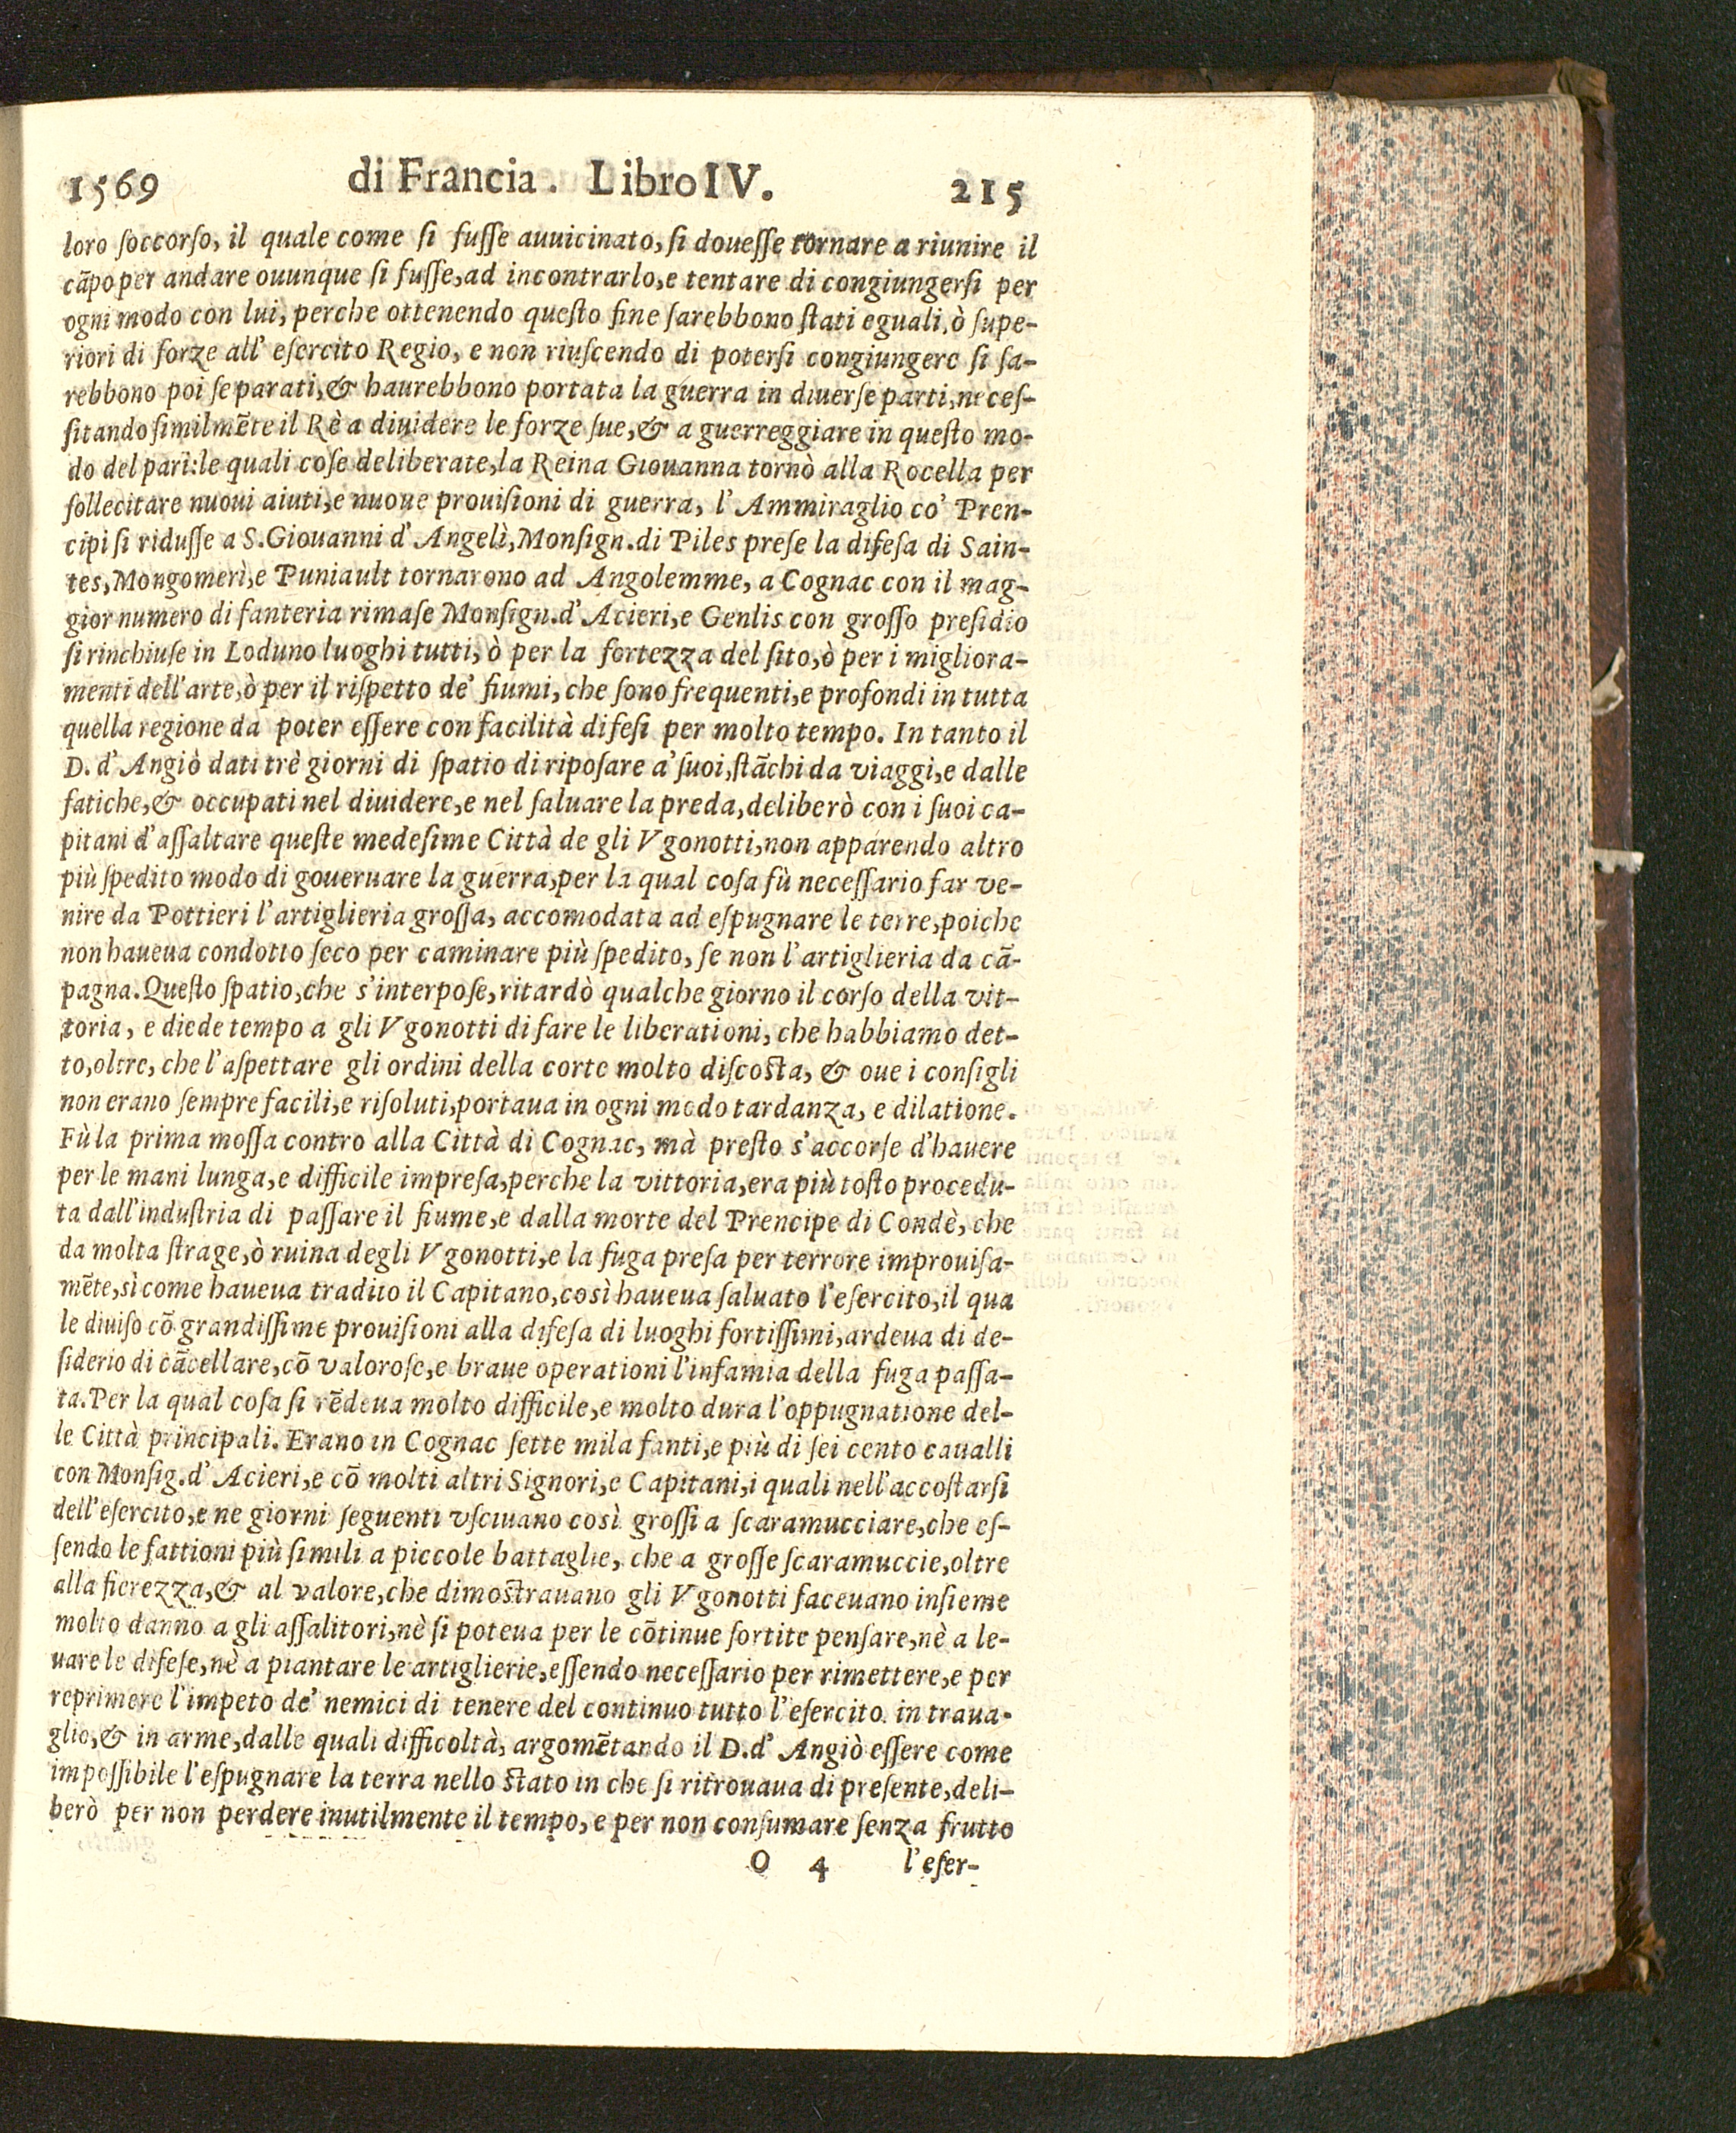 1569 di Francia. Libro IV. 215
loro ſoccorſo, il quale come ſi fuſſe auuicinato, ſi doueſſe tornare a riunire il
cāpo per andare ouunque ſi fuſſe, ad incontrarlo, e tentare di congiungerſi per
ogni modo con lui, perche ottenendo queſto fine ſarebbono ſtati eguali, ò ſupe-
riori di forze all' eſercito Regio, e non riuſcendo di poterſi congiungere ſi ſa-
rebbono poi ſeparati, & haurebbono portata la guerra in diuerſe parti, neceſ-
ſitando ſimilmēte il Rè a diuidere le forze ſue, & a guerreggiare in queſto mo-
do del pari: le quali coſe deliberate, la Reina Giouanna tornò alla Rocella per
ſollecitare nuoui aiuti, e nuoue prouiſioni di guerra, l' Ammiraglio co' Pren-
cipi ſi riduſſe a S. Giouanni d' Angelì, Monſign. di Piles preſe la difeſa di Sain-
tes, Mongomerì, e Puniault tornarono ad Angolemme, a Cognac con il mag-
gior numero di fanteria rimaſe Monſign. d' Acieri, e Genlis con groſſo preſidio
ſi rinchiuſe in Loduno luoghi tutti, ò per la fortezza del ſito, ò per i migliora-
menti dell'arte, ò per il riſpetto de' fiumi, che ſono frequenti, e profondi in tutta
quella regione da poter eſſere con facilità difeſi per molto tempo. In tanto il
D. d' Angiò dati trè giorni di ſpatio di ripoſare a' ſuoi, ſtāchi da viaggi, e dalle
fatiche, & occupati nel diuidere, e nel ſaluare la preda, deliberò con i ſuoi ca-
pitani d'aſſaltare queſte medeſime Città de gli Vgonotti, non apparendo altro
più ſpedito modo di gouernare la guerra, per la qual coſa fù neceſſario far ve-
nire da Pottieri l'artiglieria groſſa, accomodata ad eſpugnare le terre, poiche
non haueua condotto ſeco per caminare più ſpedito, ſe non l'artiglieria da cā-
pagna. Queſto ſpatio, che s'interpoſe, ritardò qualche giorno il corſo della vit-
toria, e diede tempo a gli Vgonotti di fare le liberationi, che habbiamo det-
to, oltre, che l'aſpettare gli ordini della corte molto diſcoſta, & oue i conſigli
non erano ſempre facili, e riſoluti, portaua in ogni modo tardanza, e dilatione.
Fù la prima moſſa contro alla Città di Cognac, mà preſto s'accorſe d'hauere
per le mani lunga, e difficile impreſa, perche la vittoria, era più toſto procedu-
ta dall'induſtria di paſſare il fiume, e dalla morte del Prencipe di Condè, che
da molta ſtrage, ò ruina degli Vgonotti, e la fuga preſa per terrore improuiſa-
mēte, sì come haueua tradito il Capitano, così haueua ſaluato l'eſercito, il qua
le diuiſo cō grandiſſime prouiſioni alla difeſa di luoghi fortiſſimi, ardeua di de-
ſiderio di cācellare, cō valoroſe, e braue operationi l'infamia della fuga paſſa-
ta. Per la qual coſa ſi rēdeua molto difficile, e molto dura l'oppugnatione del-
le Città principali. Erano in Cognac ſette mila fanti, e più di ſei cento caualli
con Monſig. d' Acieri, e cō molti altri Signori, e Capitani, i quali nell'accoſtarſi
dell'eſercito, e ne giorni ſeguenti vſciuano così groſſi a ſcaramucciare, che eſ-
ſendo le fattioni più ſimili a piccole battaglie, che a groſſe ſcaramuccie, oltre
alla fierezza, & al valore, che dimoſtrauano gli Vgonotti faceuano inſieme
molto danno a gli aſſalitori, nè ſi poteua per le cōtinue ſortite penſare, nè a le-
uare le difeſe, nè a piantare le artiglierie, eſſendo neceſſario per rimettere, e per
reprimere l'impeto de' nemici di tenere del continuo tutto l'eſercito in traua-
glio, & in arme, dalle quali difficoltà, argomētando il D. d' Angiò eſſere come
impoſſibile l'eſpugnare la terra nello ſtato in che ſi ritrouaua di preſente, deli-
berò per non perdere inutilmente il tempo, e per non conſumare ſenza frutto
O 4 l'eſer-